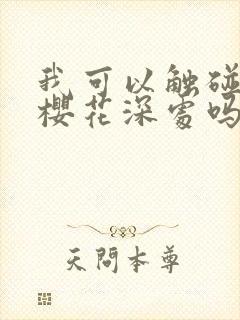 我可以触碰
樱花深处吗
天问本尊